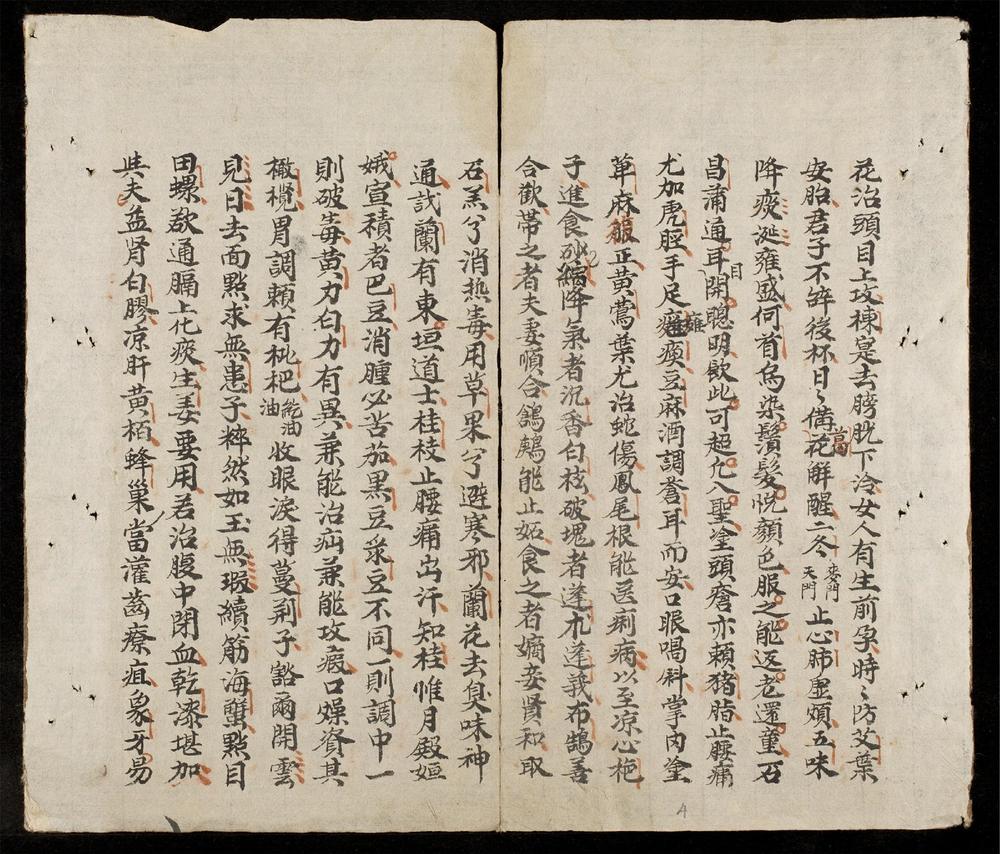 花治頭目上攻棟寔去膀胱下冷女人有生前孕時〻防艾葉
安胎君子不辞後杯日〻備葛花觧醒二冬麥門天門止心肺虛煩五味
降痰涎雍盛何首烏染鬚髮悅顏色服之能返老還童石
昌蒲通耳開目聰明飲此可超允入聖塗頭瘡亦賴猪脂止腰痛
尤加虎脛手足癱瘓豆麻酒調蒼耳而安口眼喎斜掌內塗
草麻服正黃鶯葉尤治蛇傷鳳尾根能医痢病以至凉心栀
子進食砂縮降氣者沉香白枝破塊者蓬朮蓬莪布鵠善
合歡帶之者夫妻順合鴿鶊能止妬食之者嫡妾賢和取
石羔兮消热毒用草果兮避寒邪蘭花去臭味神
通訖蘭有東垣道士桂枝止腰痛出汗知桂惟月殿姮
娥宣積者巴豆消腫必苦茄黑豆菉豆不同一則調中一
則破毒黄力白力有異兼能治疝兼能攻瘕口燥資其
橄欖胃調賴有枇杷能油油收眼淚得蔓荆子豁爾開雲
見日去面點求無患子粹然如玉無瑕續筋海蟹點目
田螺欬通膈上化痰生姜要用若治腹中閉血乾漆堪加
其夫益肾白膠凉肝黄栢蜂巢當灌齒療疽象牙易